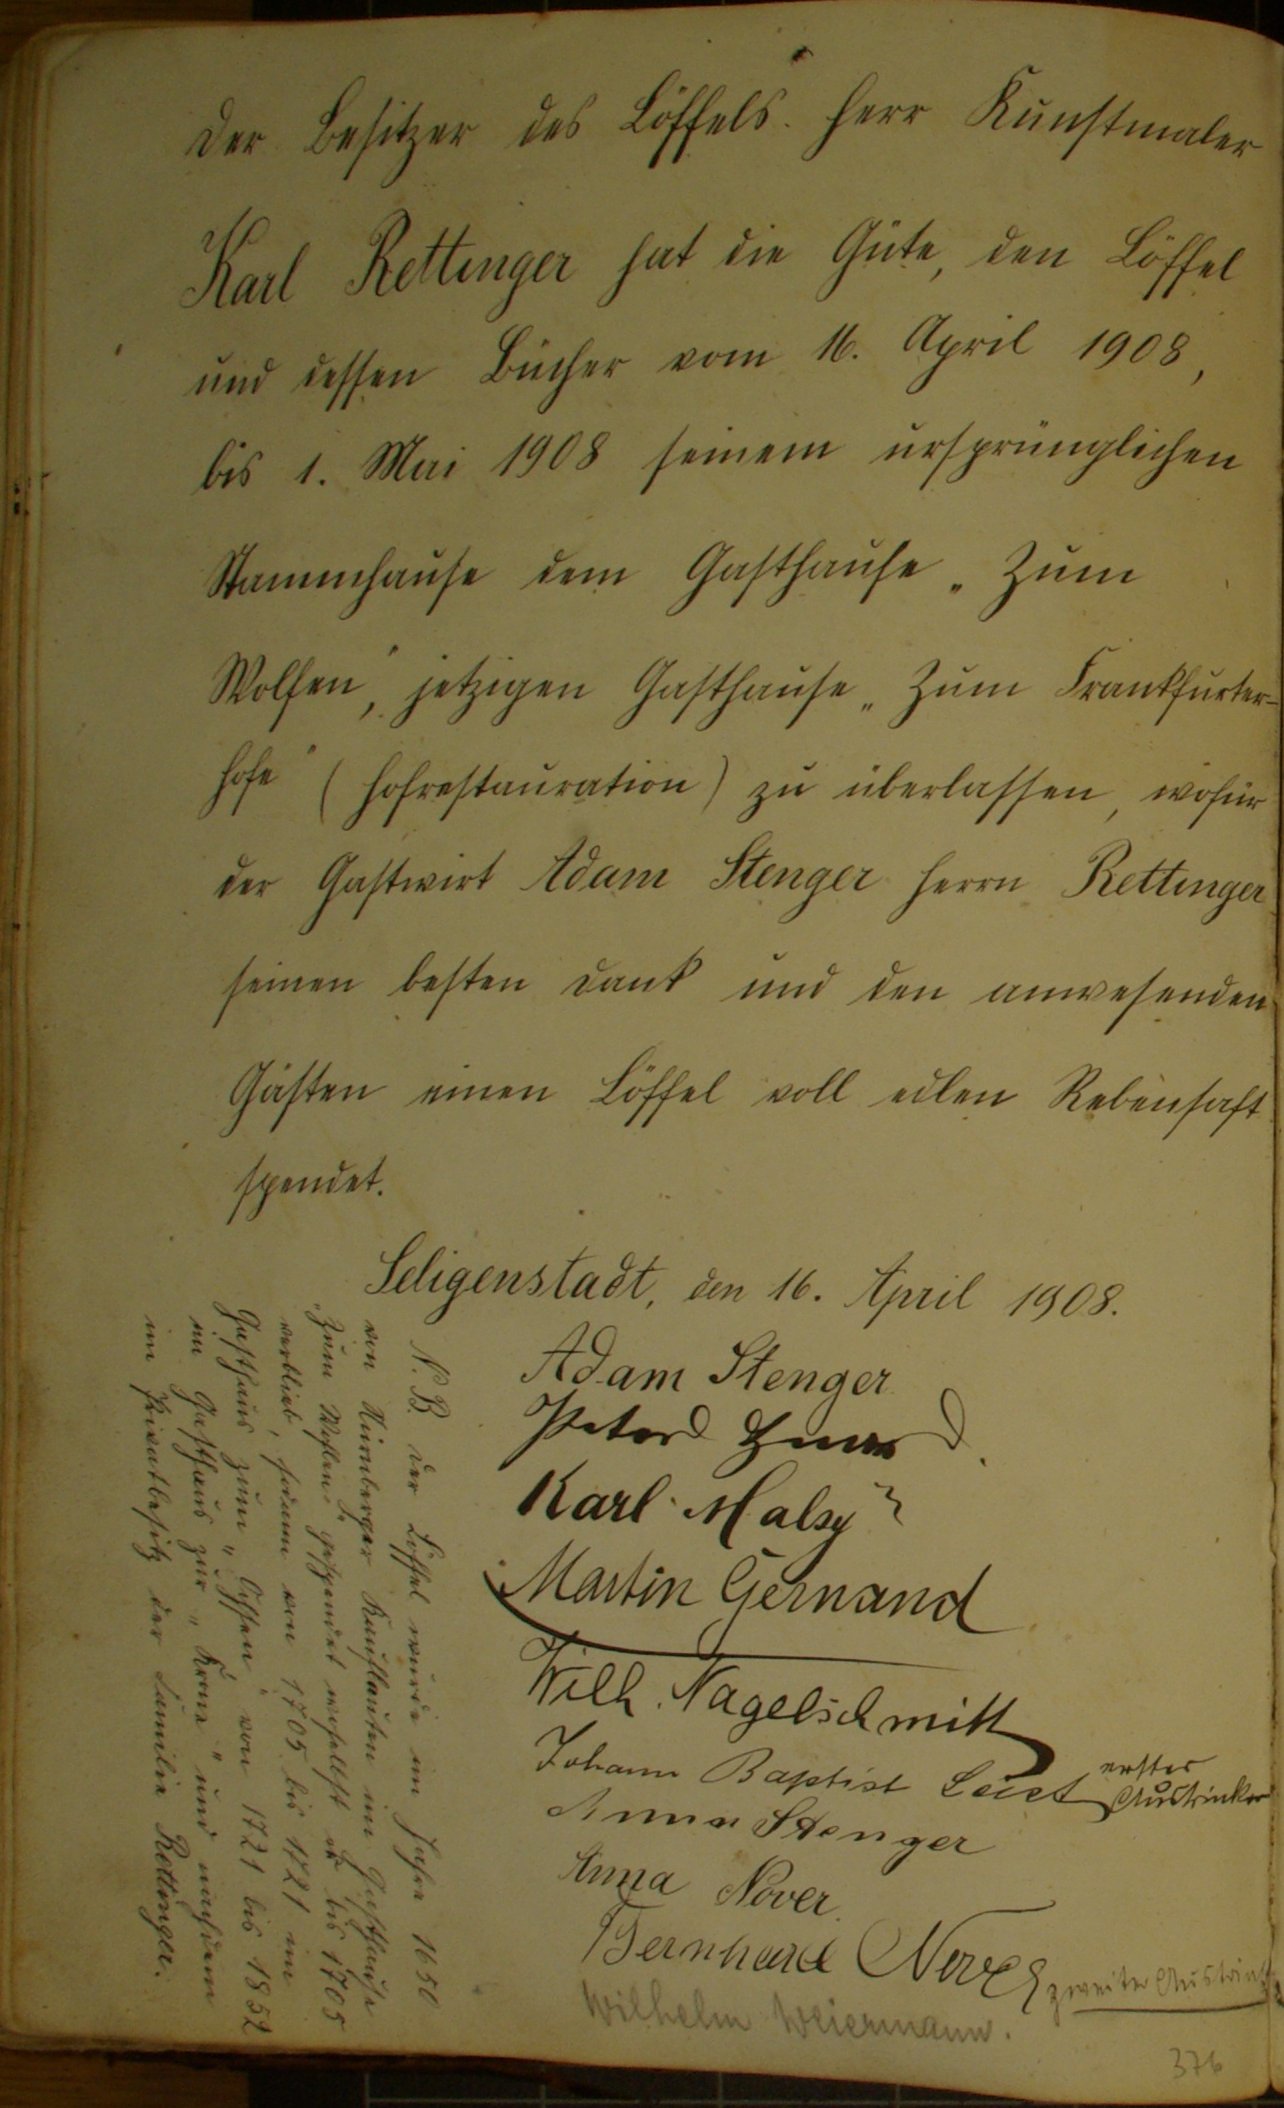 Der Besitzer des Löffels. Herr Kunstmaler
Karl Rettinger hat die Güte, den Löffel
und dessen Bücher vom 16. April 1908,
bis 1. Mai 1908 seinem ursprünglichen
Stammhause dem Gasthause „Zum
Wolfen", jetzigen Gasthause „Zum Frankfurter-
hofe" (Hofrestauration) zu überlassen, wofür
der Gastwirt Adam Stenger Herrn Rettinger
seinen besten Dank und den anwesenden
Gästen einen Löffel voll edlen Rebensaft
spendet.
Seligenstadt, den 16. April 1908.
Adam Stenger
Peter
Karl Malsy
Martin Gernand
Wilh. Nagelschmitt
Johann Baptist Leist erster Austrinker
Anna Stenger
Anna Nover.
Bernhard zweiter
Wilhelm Weiermann.
N.B. der Löffel wurde im Jahre 1650
von Nürnberger Kaufleuten im Gasthause
„Zum Wolfen" gespendet woselbst er bis 1705
verblieb, sodann von 1705 bis 1721 im
Gasthaus zum „Ochsen" von 1721 bis 1852
im Gasthaus zur „Krone" und nachdem
im Privatbesitz der Familie Rettinger.
376